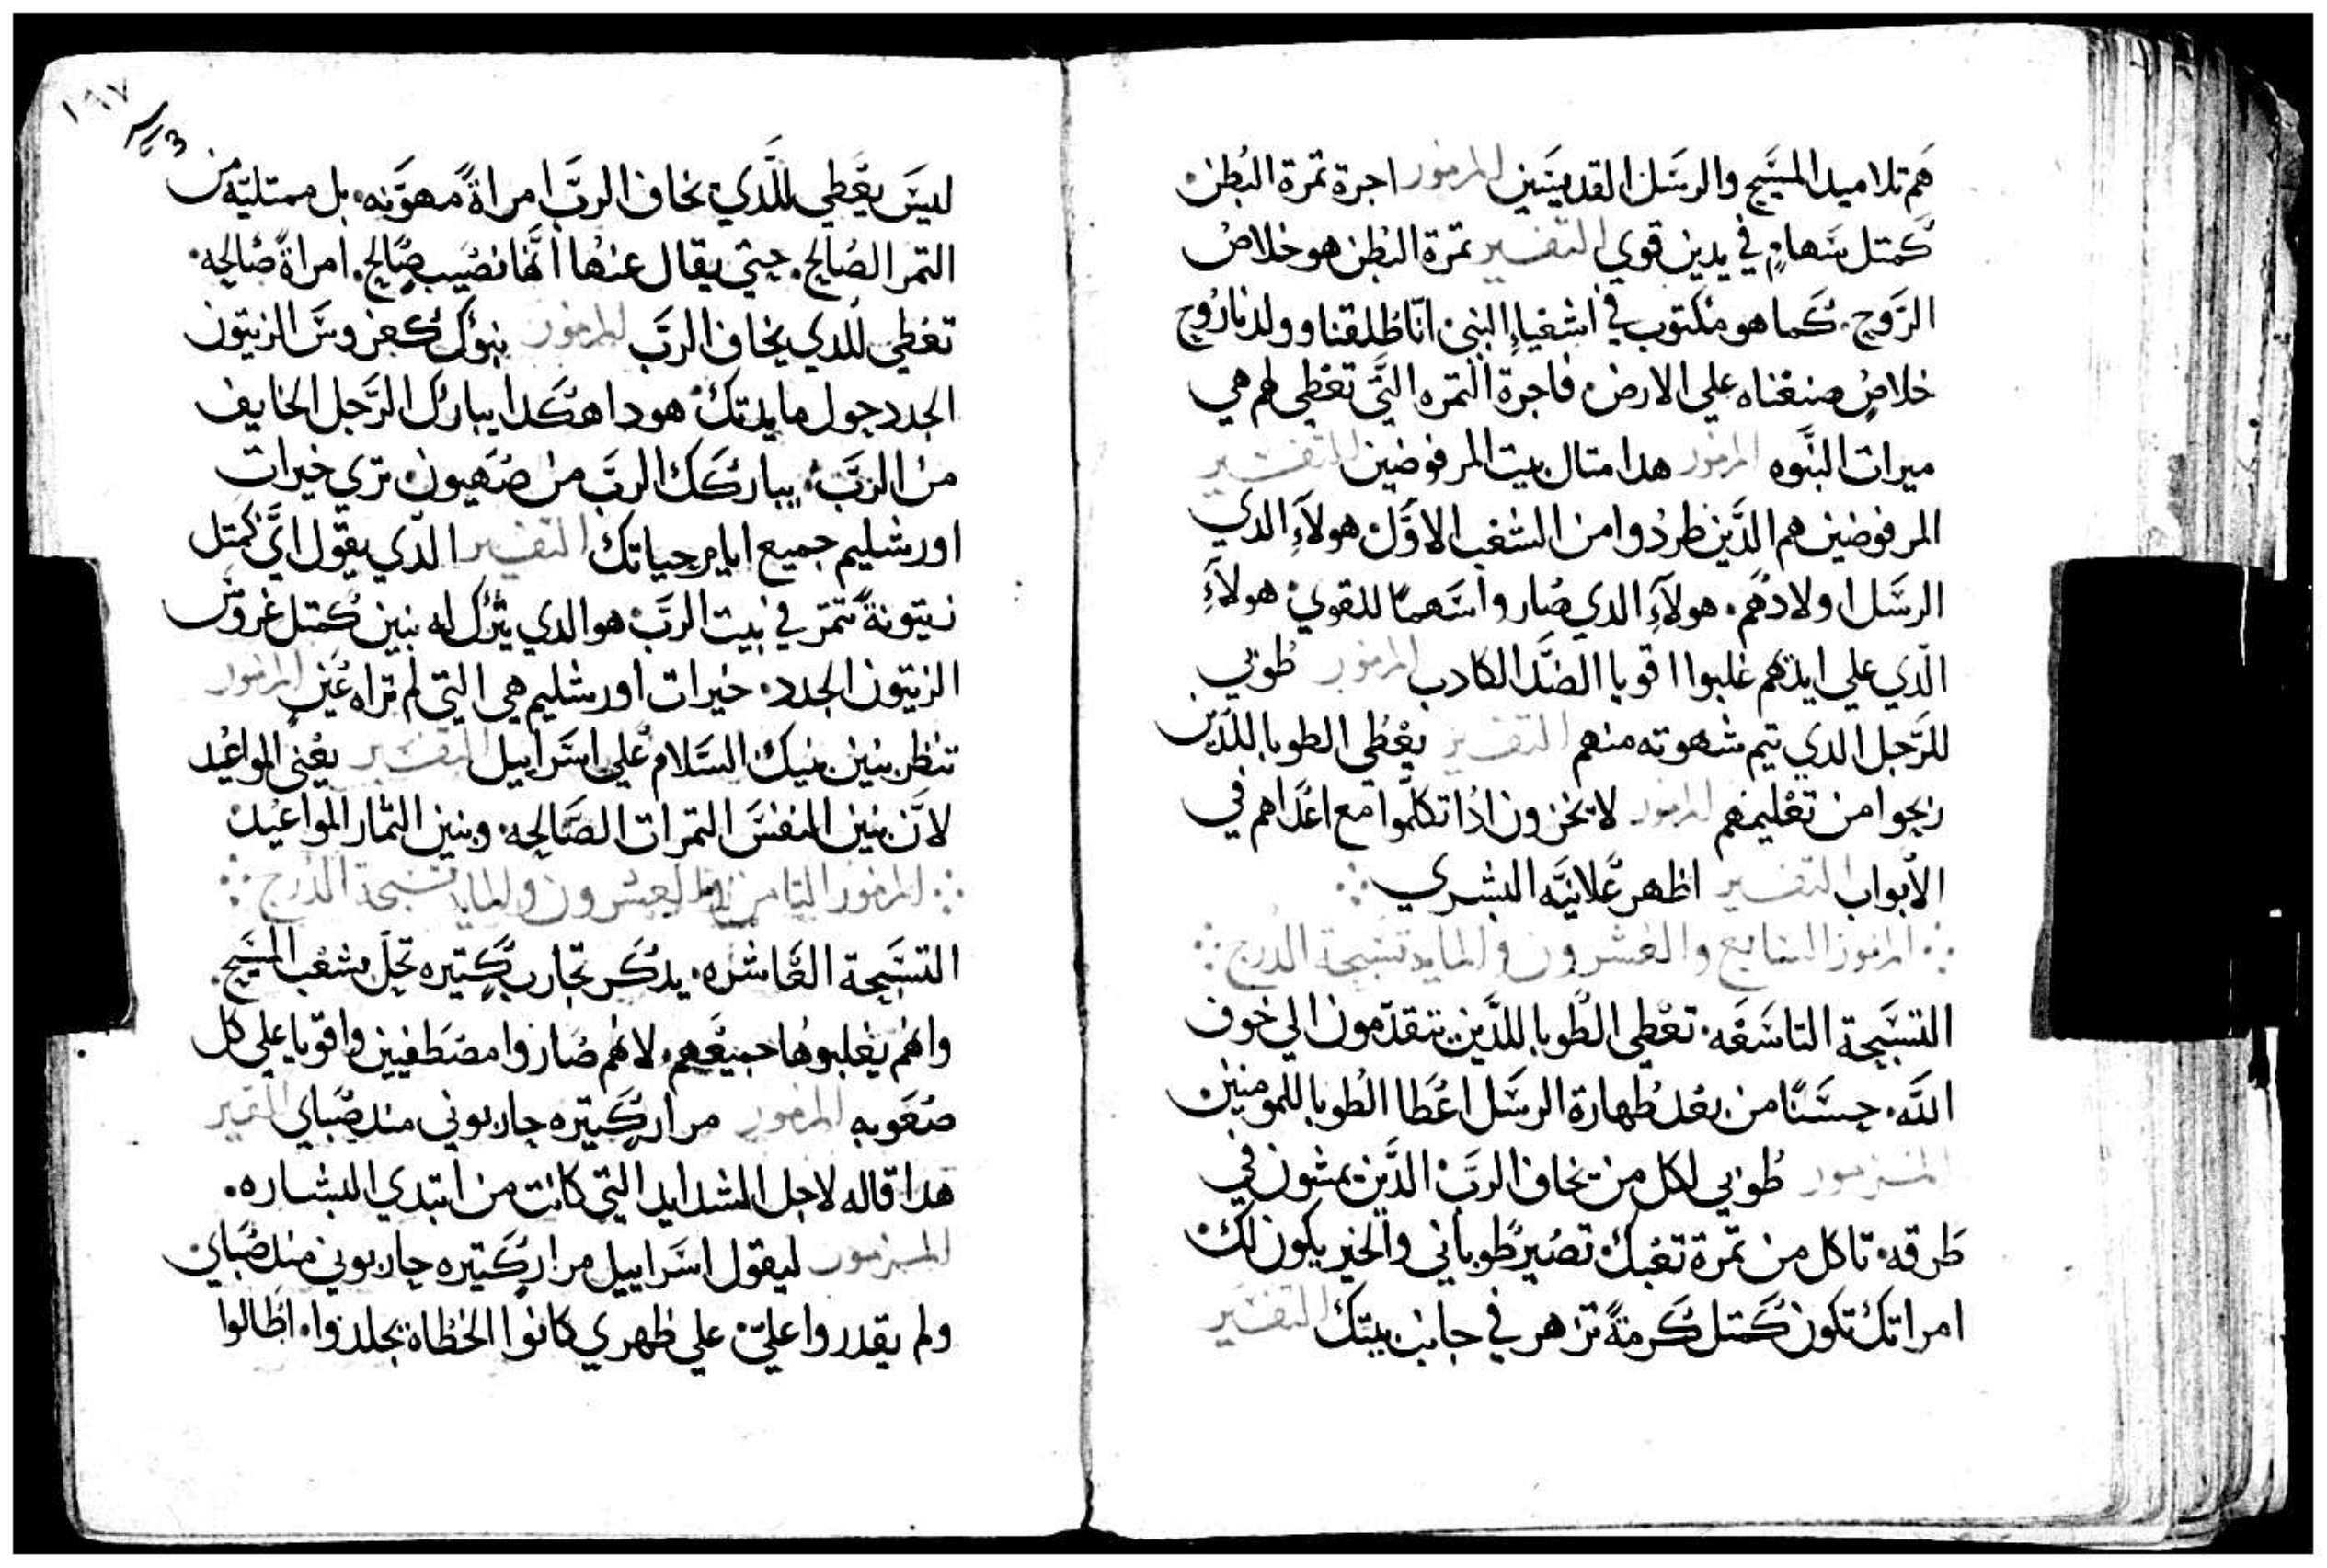 هم تلاميد المسَيح والرسَل القديسَين المزمور اجرة تمرة البُطن
كَمتل سَهامٍ في يدين قوي التفسير تمرة البُطن هو خلاصُ
الرَوح. كَما هو مكتوب في اشعيا النبي انّا طلقنا وولدنا رُوح
خلاصٍ صنعناه علي الارض فاجرة التمره التَّي تعطي لهم هي
ميرات البنَوه المزمور هدا متال بيت المرفوضين التفسير
المرفوضين هم الدَّين طردُوا من الشعب الاوَّل هولآءِ الدي
الرسَل اولادهُم. هولآءِ الدي صَاروا اسَهمًا للقوي هولآءِ
الدّي علي ايدَهم غلبوا اقويا الضَّد الكادب المزمور طُوبي
للرَجل الدي تيم شهوته منهم التفسير يعْطي الطوبا للدَّين
ربحوا من تعْليمهم المزمور لا يخزون ادُا تكلّموا مع اعْدَاهم في
الاَبواب التفسير اظهر عَلانيَّه البشري
المزمور السَابع والعشرون والمايه تسَبحة الدرج
التسَبحة التاسَعَه. تعْطي الطُوبا للدَّين يتقدّمون الي خوف
الله. حِسَنًا من بعْد طُهارة الرسَل اعُطَا الطُوبا للمومنين
المزمور طُوبي لكل من يخاف الربَّ الدَّين يمشون في
طَرقه. تاكل من تمرة تعْبك تصُير طُوبَاني والخير يكون لك
امراتكْ تكون كَمتل كَرمةً تزهر في جانب بيتكْ التفسَير
ليسَ يعَطي للَّدي يخاف الربَّ امراةً مهوَّنه. بل ممتليّه من
التمر الصَالح. حِتي يقال عنهْا انَّها نصَيب صَالح. امراةً صَالحِه.
تعْطي للدي يخاف الربَّ المزمور بنوكْ كغروسَ الزيتون
الجدد حول مايدتكْ هودا هكَدا يباركْ الرَجل الخايف
من الربَّ يباركَك الربَّ من صَهيون تري خيرات
اورشليم جميع ايام حياتك التفسير الدّي يقول ايَّ كمتل
زيتونةً تتمر في بيت الربَّ هو الدي يتركْ له بنين كَمتل غروسَ
الزيتون الجدد. خيرات اورشليم هي التي لم تراه عَينٍ المزمور
تنظر بنين بنيك السَلام علي اسَراييل التفسير يعْني المواعيْد
لانّ بنين النفسَ التمرات الصَالحِه. وبنين التمار المواعيْد
المزمور التامن والعشرون والمايه تسَبحة الدرج
التسَبحة العَاشره. يدكَر تجارب كَتيره تحلّ بشعْب المسَيح.
وانهم يغْلبوها جميعَهم. لانهم صَاروا مصَطفيين واقويا علي كل
صَعَوبه المزمور مرار كَتيره حِاربوني مند صَباي التفسير
هدا قاله لاجل الشدايد التي كانت من ابتدي البشاره.
المزمور ليقول اسَراييل مرار كَتيره حِاربوني مند صَباي
ولم يقدروا عليّ علي ظهري كانوا الخطاة يجلدوا. اطَالوا